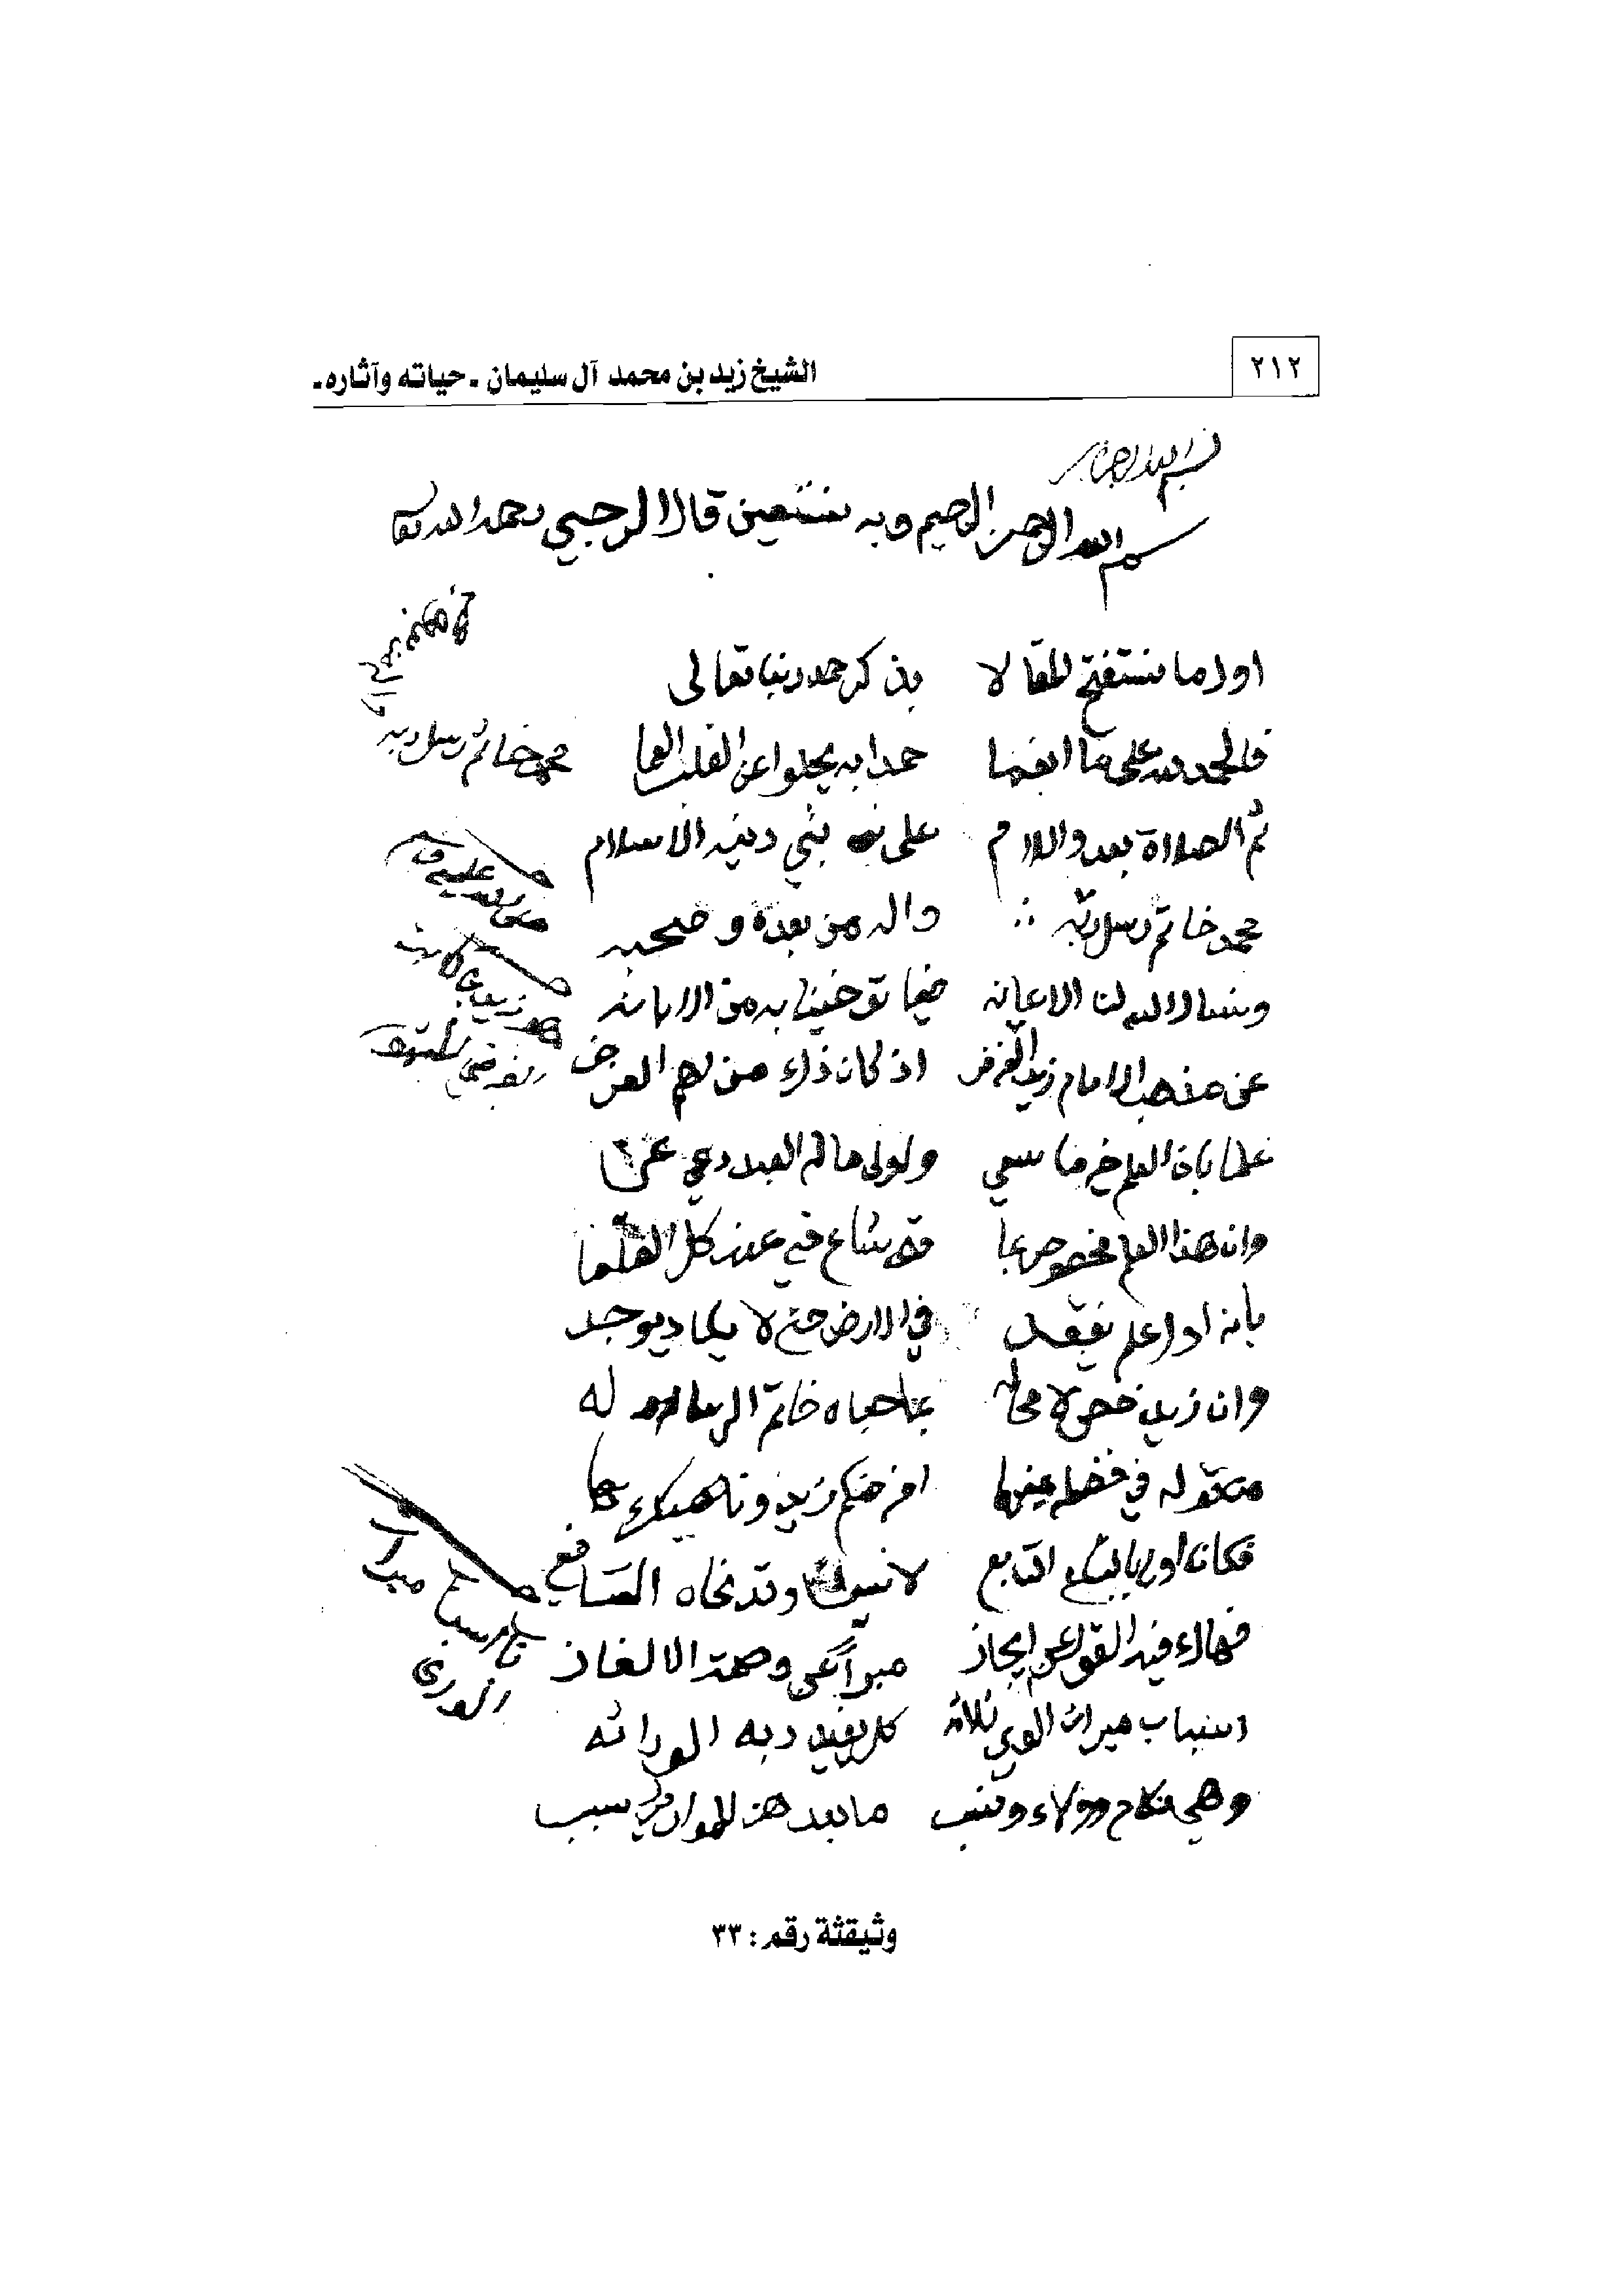 ٢١٢
الشيخ زيد بن محمد آل سليمان ـ حياته وآثاره ـ
بسم الله الرحمن الرحيم وبه نستعين قال الرحبي رحمه الله تعا
اول ما نستفتح المقالا بذكر حمد ربنا تعالى
فالحمد لله على ما انعما حمدا به يجلوا عن القلب العما
ثم الصلاة بعد والسلام على نبي دينه الاسلام
محمد خاتم رسل ربه واله من بعده وصحبه
ونسال الله لنا الاعانه فيما توخينا به من الابانه
عن مذهب الامام زيد الفرضي اذ كان ذاك من اهم الغرض
علما بان العلم خير ما سعي واولى ما له العبد دعي
وان هذا العلم مخصوص بما قد شاع فيه عند كل العلما
بانه اول علم يفقد في الارض حتى لا يكاد يوجد
وان زيد خص لا محاله بما حباه خاتم الرساله
من قوله في فضله منبها افرضكم زيد وناهيك بها
فكان اولى باتباع التابع لا سيما وقد نحاه الشافعي
فهاك فيه القول عن ايجاز مبرأ عن وصمة الالغاز
اسباب ميراث الورى ثلاثه كل يفيد ربه الوراثه
وهي نكاح وولاء ونسب ما بعدهن للمواريث سبب
محمد خاتم رسل ربه
وثيقثة رقم : ٣٣